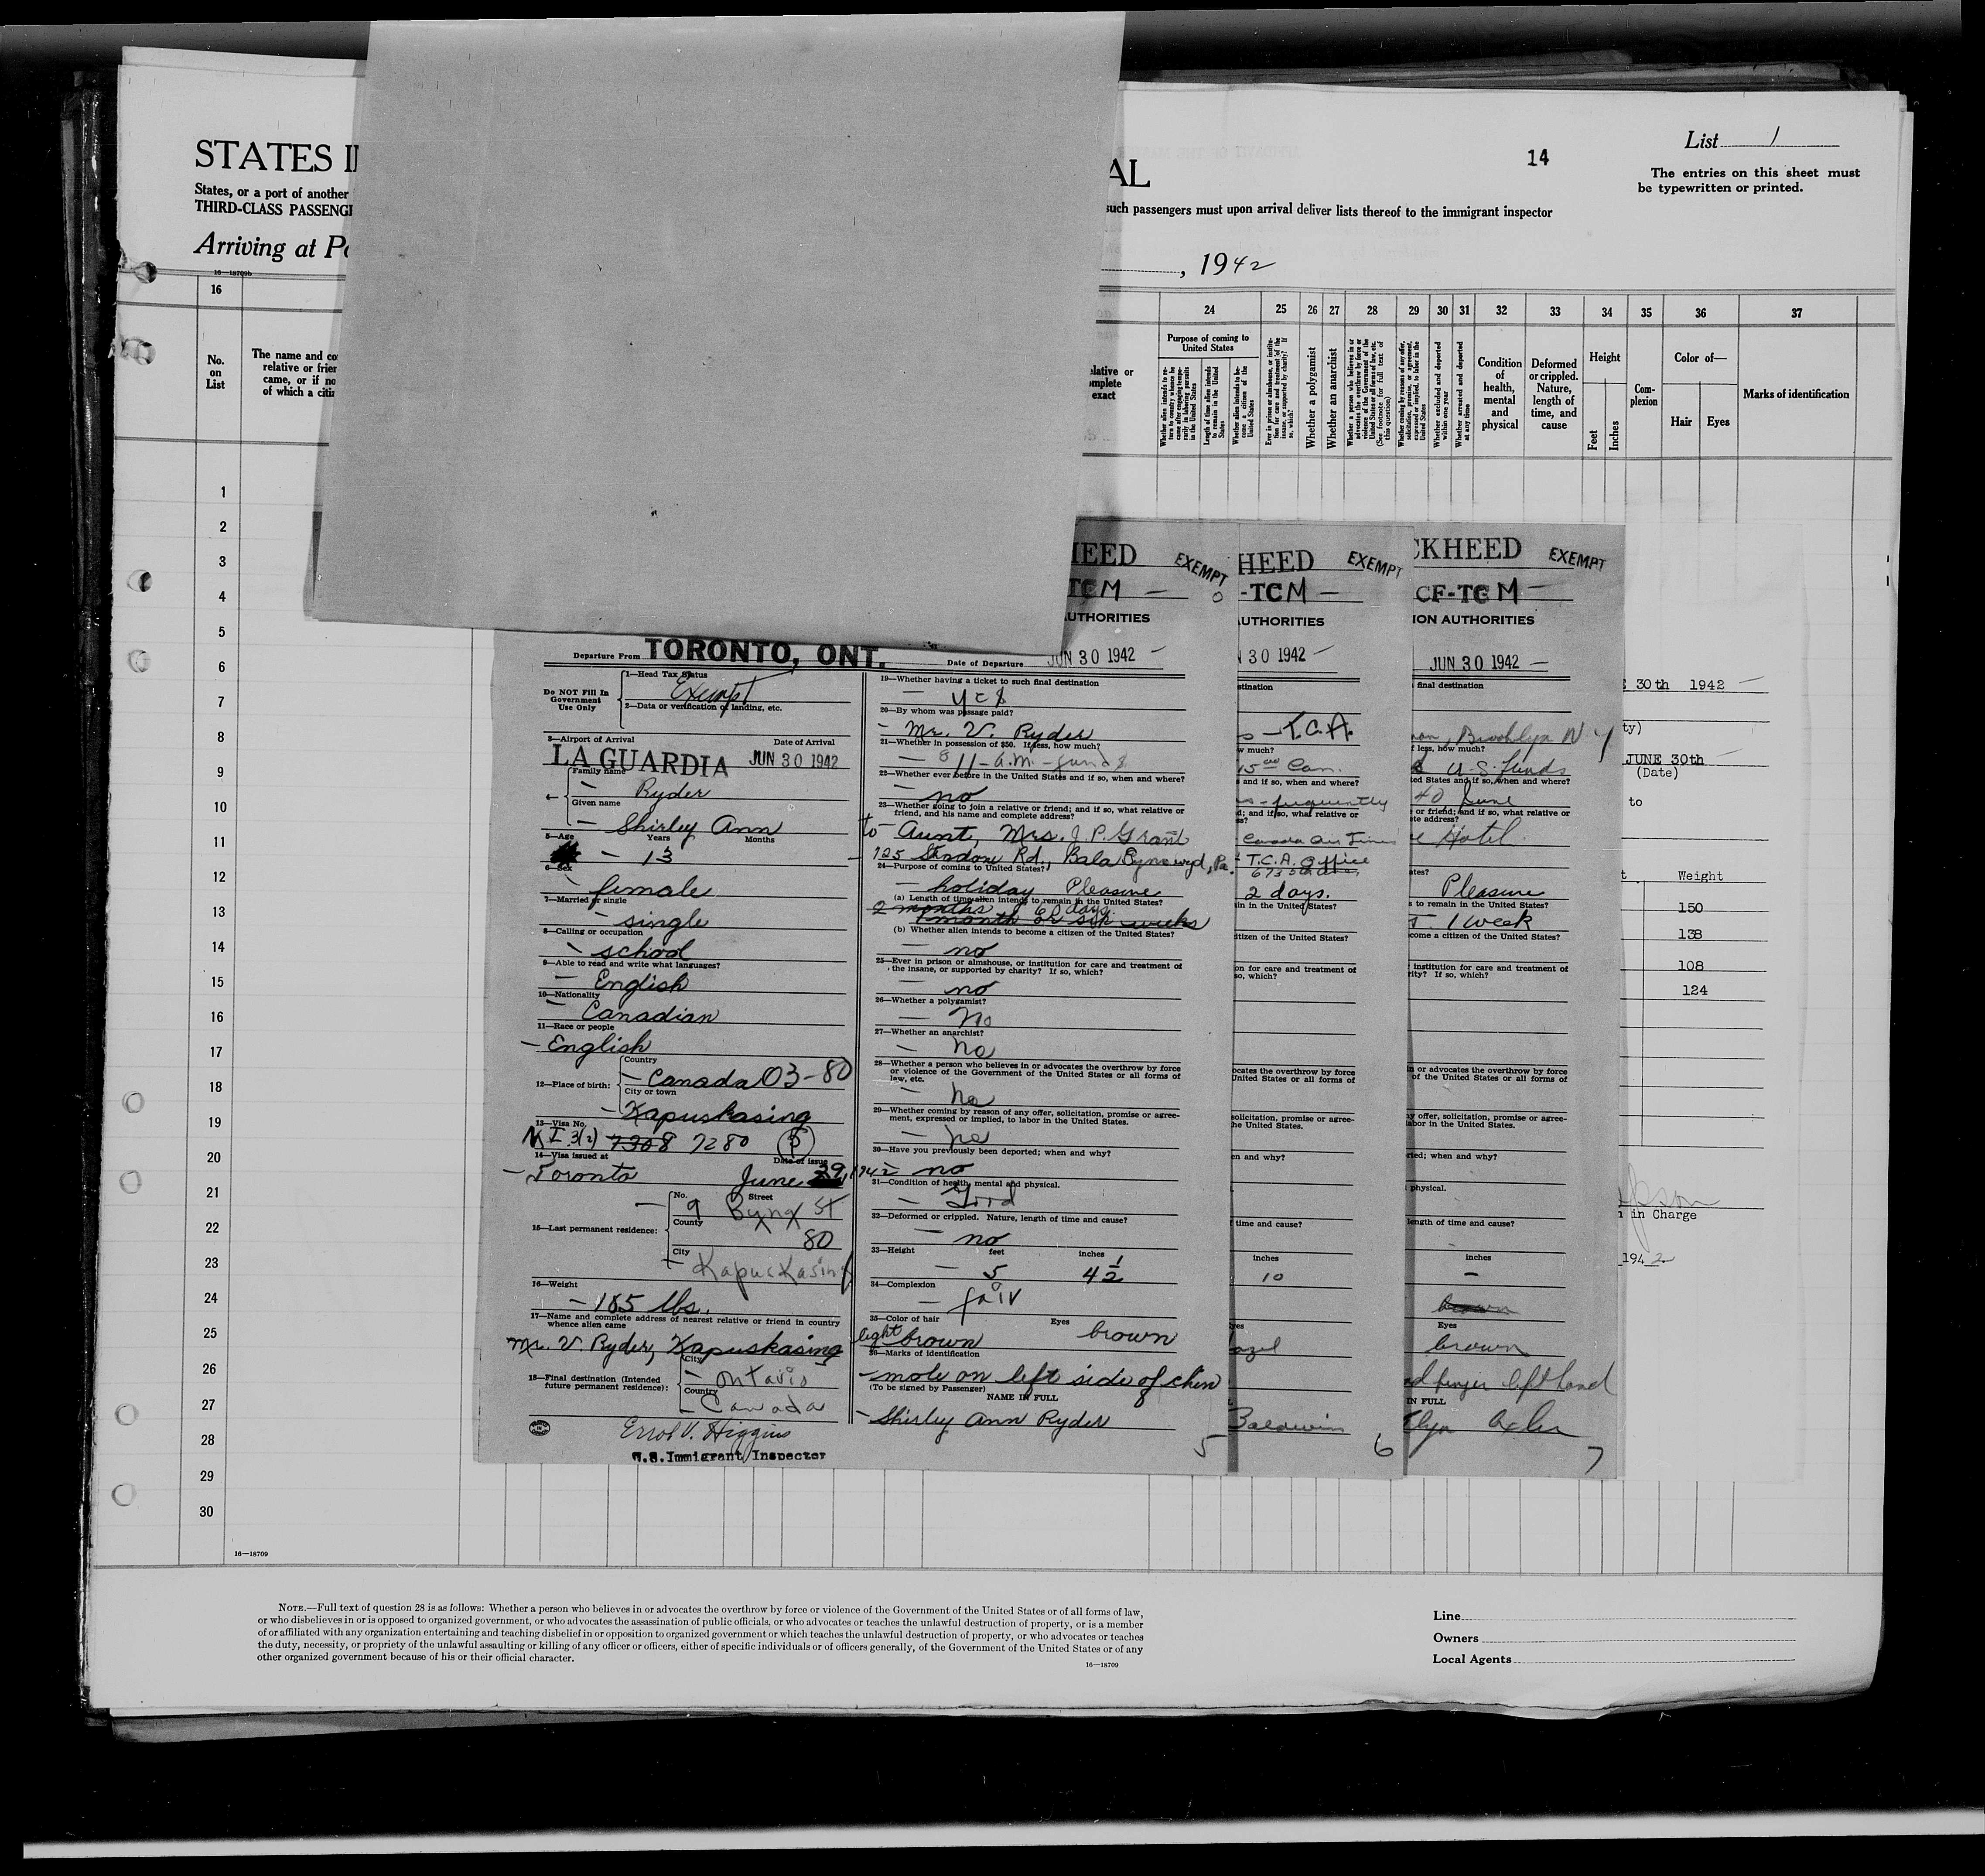 STATES I
AL
14
List 1
The entries on this sheet must
be typewritten or printed.
States, or a port of another
such passengers must upon arrival deliver lists thereof to the immigrant inspector
THIRD-CLASS PASSENG
Arriving at Po
, 1942
16—18709b
16 24 25 26 27 28 29 30 31 32 33 34 35 36 37
No. on List
The name and co
relative or frien
came, or if no
of which a citi
elative or
omplete
exact
Purpose of coming to
United States
Whether a polygamist
Whether an anarchist
Condition of health, mental and physical
Deformed or crippled. Nature, length of time, and cause
Height
Feet
Inches
Com-
plexion
Color of—
Hair Eyes
Marks of identification
1
2
3
4
5
6
7
8
9
10
11
12
13
14
15
16
17
18
19
20
21
22
23
24
25
26
27
28
29
30
16—18709
Departure From TORONTO, ONT.
Date of Departure JUN 30 1942 —
Do NOT Fill In
Government
Use Only
1—Head Tax Status
Exempt
2—Data or verification of landing, etc.
3—Airport of Arrival Date of Arrival
LA GUARDIA JUN 30 1942
Family name
— Ryder
4—
Given name
— Shirley Ann
5—Age Years Months
— 13
6—Sex
— female
7—Married or single
— single
8—Calling or occupation
— school
9—Able to read and write what languages?
— English
10—Nationality
— Canadian
11—Race or people
— English
12—Place of birth:
Country
— Canada 03-80
City or town
— Kapuskasing
13—Visa No.
I 3(2) 7308 7280 5
14—Visa issued at Date of issue
— Toronto June 29, 1942
15—Last permanent residence:
No. Street
— 9 Byng St
County
80
City
— Kapuskasing
16—Weight
— 185 lbs.
17—Name and complete address of nearest relative or friend in country
whence alien came
Mr. V. Ryder, Kapuskasing
18—Final destination (Intended
future permanent residence):
City
— Ontario
Country
— Canada
Errol V. Higgins
U.S. Immigrant Inspector
19—Whether having a ticket to such final destination
— yes
20—By whom was passage paid?
— Mr. V. Ryder
21—Whether in possession of $50. If less, how much?
22—Whether ever before in the United States and if so, when and where?
— no
23—Whether going to join a relative or friend; and if so, what relative or
friend, and his name and complete address?
to — Aunt, Mrs. J. P. Grant
Rd., Bala Cynwyd, Pa.
24—Purpose of coming to United States?
— holiday Pleasure
(a) Length of time alien intends to remain in the United States?
2 months 60 days.
1 month or six weeks
(b) Whether alien intends to become a citizen of the United States?
— no
25—Ever in prison or almshouse, or institution for care and treatment of
the insane, or supported by charity? If so, which?
— no
26—Whether a polygamist?
— No
27—Whether an anarchist?
— No
28—Whether a person who believes in or advocates the overthrow by force
or violence of the Government of the United States or all forms of
law, etc.
— No
29—Whether coming by reason of any offer, solicitation, promise or agree-
ment, expressed or implied, to labor in the United States.
— no
30—Have you previously been deported; when and why?
— no
31—Condition of health, mental and physical.
— Good
32—Deformed or crippled. Nature, length of time and cause?
— no
33—Height feet inches
— 5 4 1/2
34—Complexion
— fair
35—Color of hair Eyes
light brown brown
36—Marks of identification
— mole on left side of chin
(To be signed by Passenger)
NAME IN FULL
— Shirley Ann Ryder
5
HEED EXEMPT
TCM —
UTHORITIES
HEED EXEMPT
-TCM —
AUTHORITIES
30 1942 —
stination
— T.C.A.
w much?
15 Can.
and if so, when and where?
— frequently
d; and if so, what relative or
Canada Air Lines
T.C.A. Office
2 days.
ain in the United States?
itizen of the United States?
on for care and treatment of
so, which?
ocates the overthrow by force
United States or all forms of
solicitation, promise or agree-
the United States.
en and why?
time and cause?
inches
10
Eyes
azel
Baldwin
6
CKHEED EXEMPT
CF-TCM —
ION AUTHORITIES
JUN 30 1942 —
final destination
Brooklyn N Y
f less, how much?
U.S. funds
ted States and if so, when and where?
40 June
or friend; and if so, what relative or
te address?
Hotel
ates?
Pleasure
s to remain in the United States?
1 week
come a citizen of the United States?
institution for care and treatment of
rity? If so, which?
in or advocates the overthrow by force
of the United States or all forms of
ny offer, solicitation, promise or agree-
labor in the United States.
rted; when and why?
physical.
length of time and cause?
inches
—
brown
Eyes
brown
finger left hand
IN FULL
7
30th 1942 —
ty)
JUNE 30th —
(Date)
to
t Weight
150
138
108
124
in Charge
1942
NOTE.—Full text of question 28 is as follows: Whether a person who believes in or advocates the overthrow by force or violence of the Government of the United States or of all forms of law,
or who disbelieves in or is opposed to organized government, or who advocates the assassination of public officials, or who advocates or teaches the unlawful destruction of property, or is a member
of or affiliated with any organization entertaining and teaching disbelief in or opposition to organized government or which teaches the unlawful destruction of property, or who advocates or teaches
the duty, necessity, or propriety of the unlawful assaulting or killing of any officer or officers, either of specific individuals or of officers generally, of the Government of the United States or of any
other organized government because of his or their official character.
16—18709
Line
Owners
Local Agents